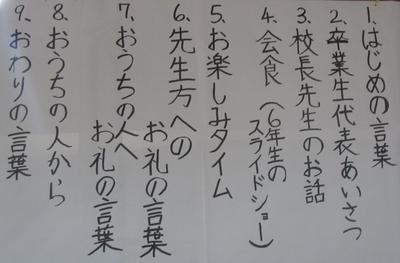 1.はじめの言葉
2.卒業生代表あいさつ
3.校長先生のお話
4.会食(6年生の
スライドショー)
5.お楽しみタイム
6.先生方への
お礼の言葉
7.おうちの人へ
お礼の言葉
8.おうちの人から
9.おわりの言葉